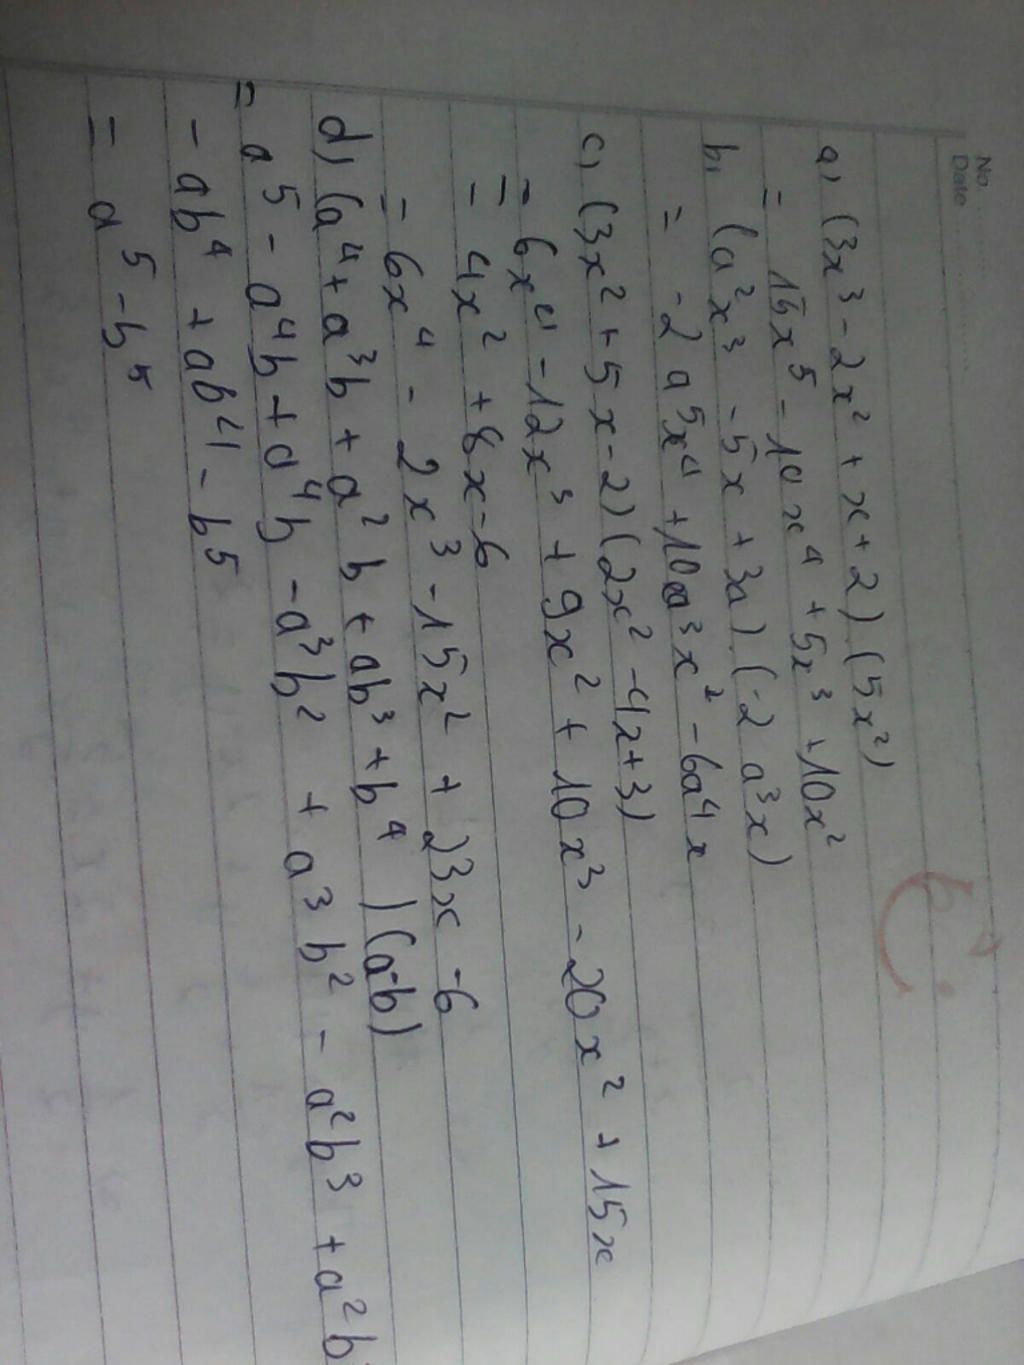 No.
Date
a) (3x³ - 2x² + x + 2).(5x²)
= 15x⁵ - 10x⁴ + 5x³ + 10x²
b) (a²x³ - 5x + 3a).(-2a³x)
= -2a⁵x⁴ + 10a³x² - 6a⁴x
c) (3x² + 5x - 2)(2x² - 4x + 3)
= 6x⁴ - 12x³ + 9x² + 10x³ - 20x² + 15x
= 4x² + 8x - 6
= 6x⁴ - 2x³ - 15x² + 23x - 6
d) (a⁴ + a³b + a²b + ab³ + b⁴)(a-b)
= a⁵ - a⁴b + a⁴b - a³b² + a³b² - a²b³ + a²b
- ab⁴ + ab⁴ - b⁵
= a⁵ - b⁵